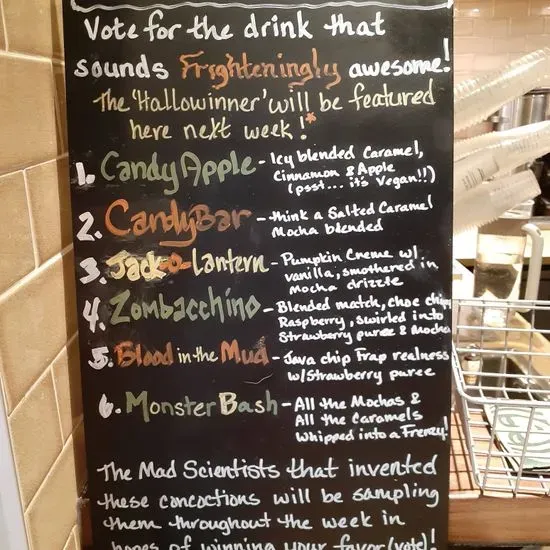 Vote for the drink that
sounds Frighteningly awesome!
The 'Hallowinner' will be featured
here next week!*
1. Candy Apple - Icy blended Caramel,
Cinnamon & Apple
(psst... it's Vegan!!)
2. CandyBar - think a Salted Caramel
Mocha blended
3. Jack-o-Lantern - Pumpkin Creme w/
vanilla, smothered in
Mocha drizzle
4. Zombacchino - Blended match, choc chip,
Raspberry, swirled into
Strawberry puree & Mocha
5. Blood in the Mud - Java chip Frap realness
w/Strawberry puree
6. Monster Bash - All the Mochas &
All the Caramels
Whipped into a Frenzy!
The Mad Scientists that invented
these concoctions will be sampling
them throughout the week in
hopes of winning your favor (vote)!